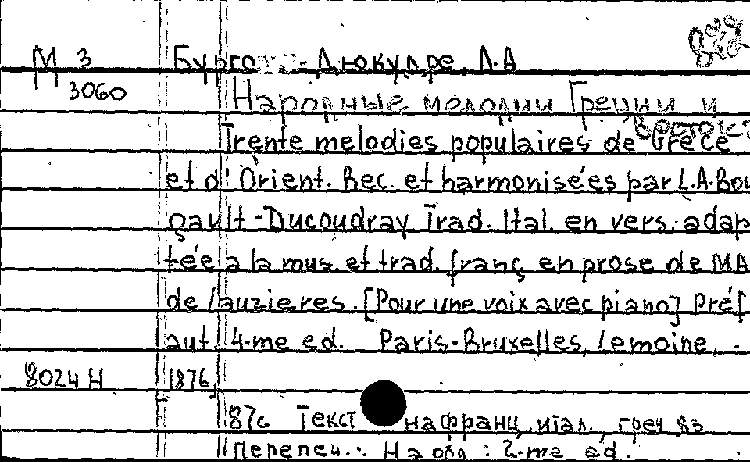 М 3 Бурго - Дюкудре, Л.А
3060 Народные мелодии Греции и
Trente melodies populaires de Grèce
et d'Orient. Rec. et harmonisées par L.A. Bou
gault-Ducoudray Trad. Ital. en vers. adap
tée a la mus et trad. franç en prose de MA
de Lauzieres. [Pour une voix avec piano] Préf
aut. 4-me ed. Paris-Bruxelles, Lemoine, .
8024 Н 1876.
87с Текст на франц, итал., греч яз
Перепеч.: : 2-me ed.